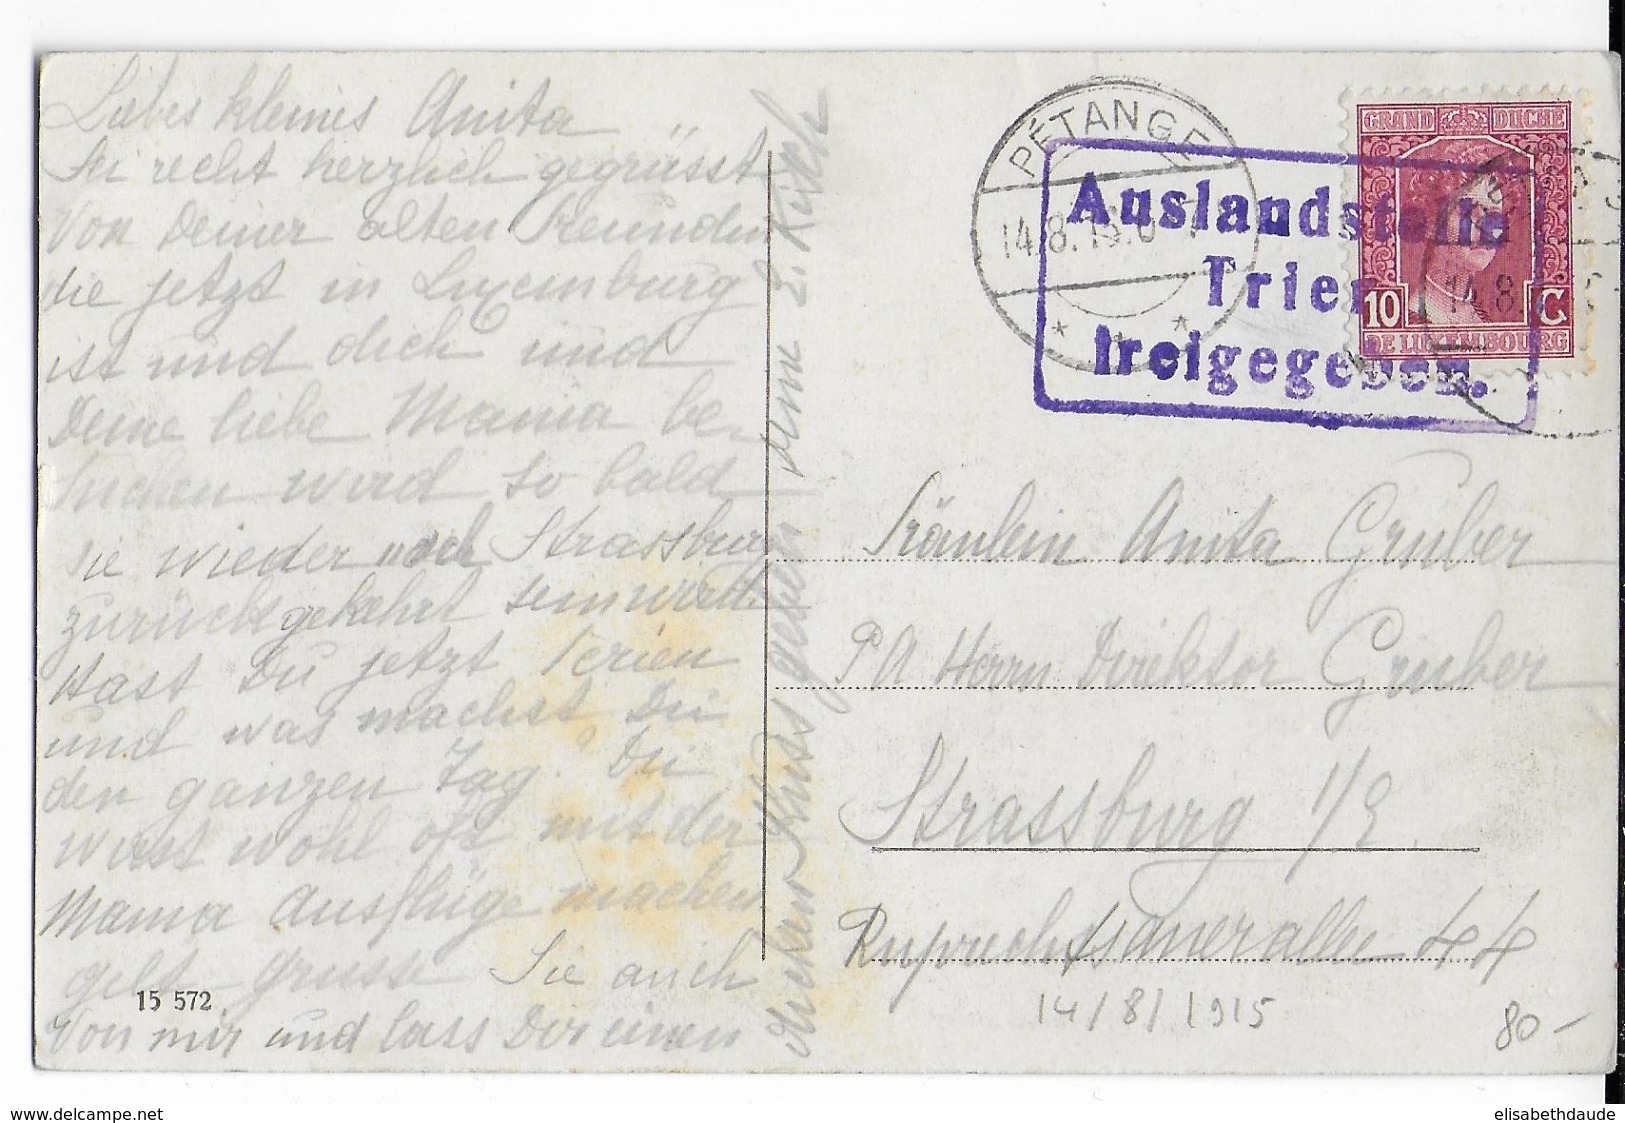 Liebes kleines Anita
Sei recht herzlich gegrüsst
von Deiner alten Freundin
die jetzt in Luxemburg
ist und dich und
Deine liebe Mama be-
suchen wird so bald
sie wieder nach Strassburg
zurückgekehrt sein wird.
Hast Du jetzt Ferien
und was machst Du
den ganzen Tag? Du
wirst wohl oft mit der
Mama Ausflüge machen
gelt grüsse Sie auch
von mir und lass Dir einen
Kuss geben
15 572
PÉTANGE
14.8.15
Auslandstelle
Trier
freigegeben.
GRAND DUCHE
10 C
DE LUXEMBOURG
14.8
Fräulein Anita Gruber
P A Herrn Direktor Gruber
Strassburg i/E
Ruprechtsauerallee 44
14/8/1915
80-
www.delcampe.net
elisabethdaude